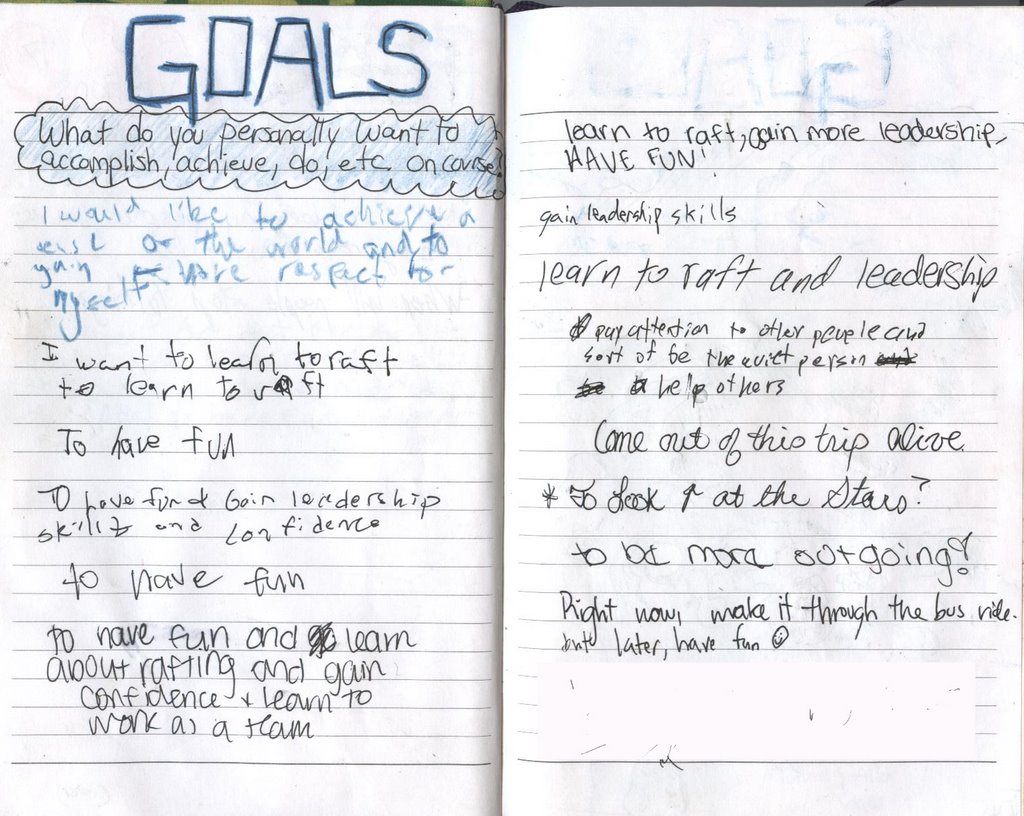 GOALS
What do you personally want to
accomplish, achieve, do, etc. on course?
I would like to achieve a
or the world and to
gain more respect for
myself
I want to learn to raft
to learn to raft
To have fun
To have fun & Gain leadership
skills and confidence
to have fun
to have fun and learn
about rafting and gain
confidence + learn to
work as a team
learn to raft, gain more leadership,
HAVE FUN!
gain leadership skills
learn to raft and leadership
pay attention to other people and
sort of be the quiet person
help others
Come out of this trip alive.
* To look ↑ at the Stars?
to be more outgoing?!
Right now, make it through the bus ride.
later, have fun ☺